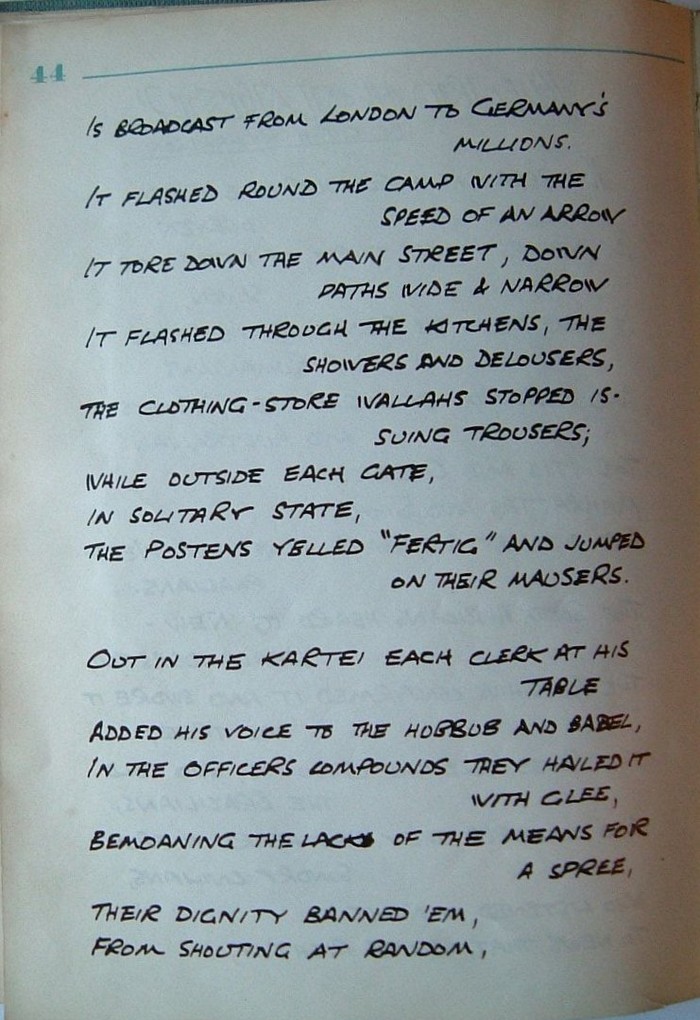 44
Is BROADCAST FROM LONDON TO GERMANY'S
MILLIONS.
IT FLASHED ROUND THE CAMP WITH THE
SPEED OF AN ARROW
IT TORE DOWN THE MAIN STREET, DOWN
PATHS WIDE & NARROW
IT FLASHED THROUGH THE KITCHENS, THE
SHOWERS AND DELOUSERS,
THE CLOTHING-STORE WALLAHS STOPPED IS-
SUING TROUSERS;
WHILE OUTSIDE EACH GATE,
IN SOLITARY STATE,
THE POSTENS YELLED "FERTIG" AND JUMPED
ON THEIR MAUSERS.
OUT IN THE KARTEI EACH CLERK AT HIS
TABLE
ADDED HIS VOICE TO THE HUBBUB AND BABEL,
IN THE OFFICERS COMPOUNDS THEY HAILED IT
WITH GLEE,
BEMOANING THE LACK OF THE MEANS FOR
A SPREE,
THEIR DIGNITY BANNED 'EM,
FROM SHOUTING AT RANDOM,